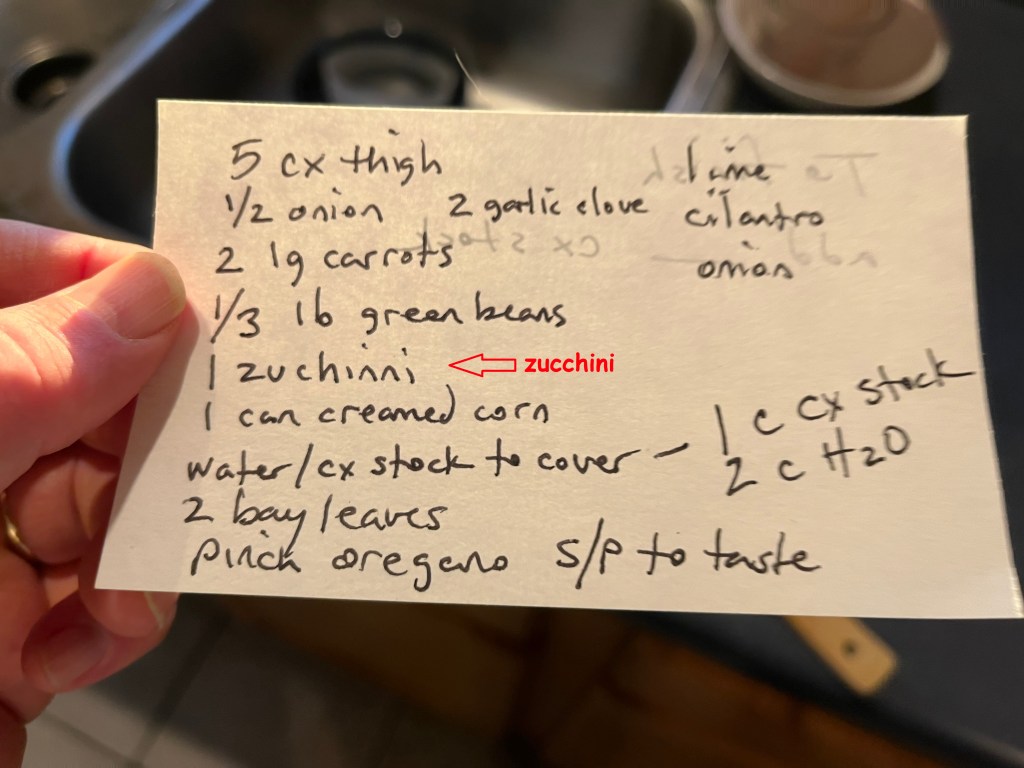 5 cx thigh
1/2 onion 2 garlic clove
2 lg carrots
1/3 lb green beans
1 zuchinni
zucchini
1 can creamed corn
water/cx stock to cover - 1 c cx stock
2 c H2O
2 bay leaves
pinch oregano s/p to taste
lime
cilantro
onion
cx stock